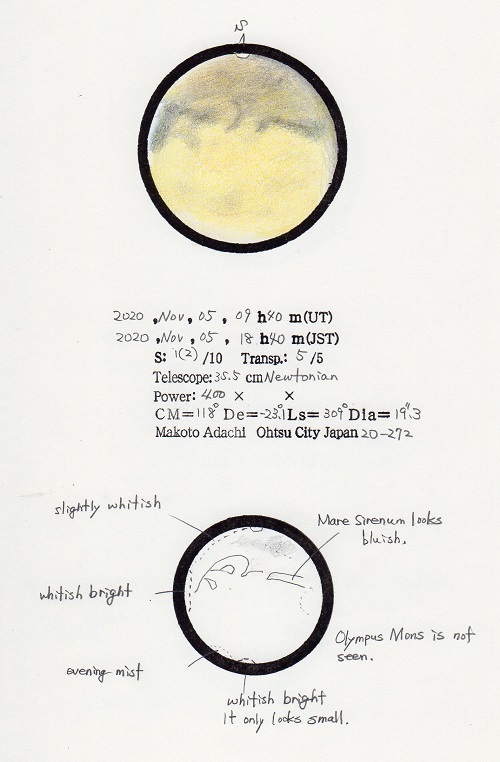 S
2020 , Nov , 05 , 09 h40 m(UT)
2020 , Nov , 05 , 18 h40 m(JST)
S: 1(2) /10 Transp.: 5 /5
Telescope: 35.5 cm Newtonian
Power: 400 × ×
CM=118° De=-23.1° Ls=309° Dia=19".3
Makoto Adachi Ohtsu City Japan 20-272
slightly whitish
Mare Sirenum looks
bluish.
whitish bright
Olympus Mons is not
seen.
evening mist
whitish bright
It only looks small.